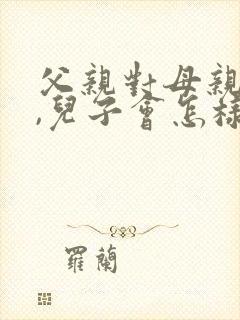 父親對母親
,兒子會怎樣
羅蘭